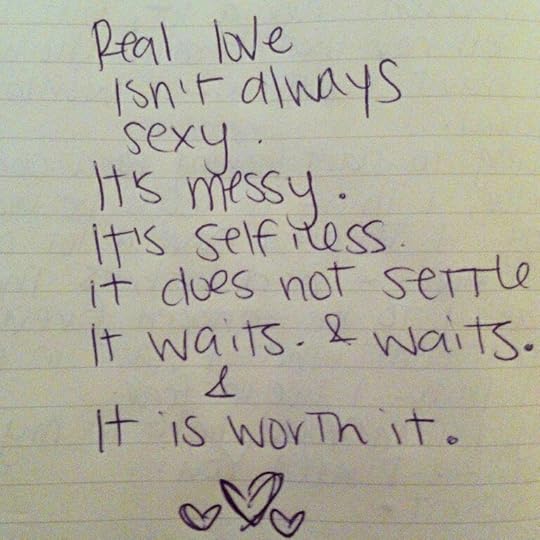 Real love
isn't always
sexy.
It's messy.
it's selfless.
it does not settle
It waits. & waits.
&
It is worth it.